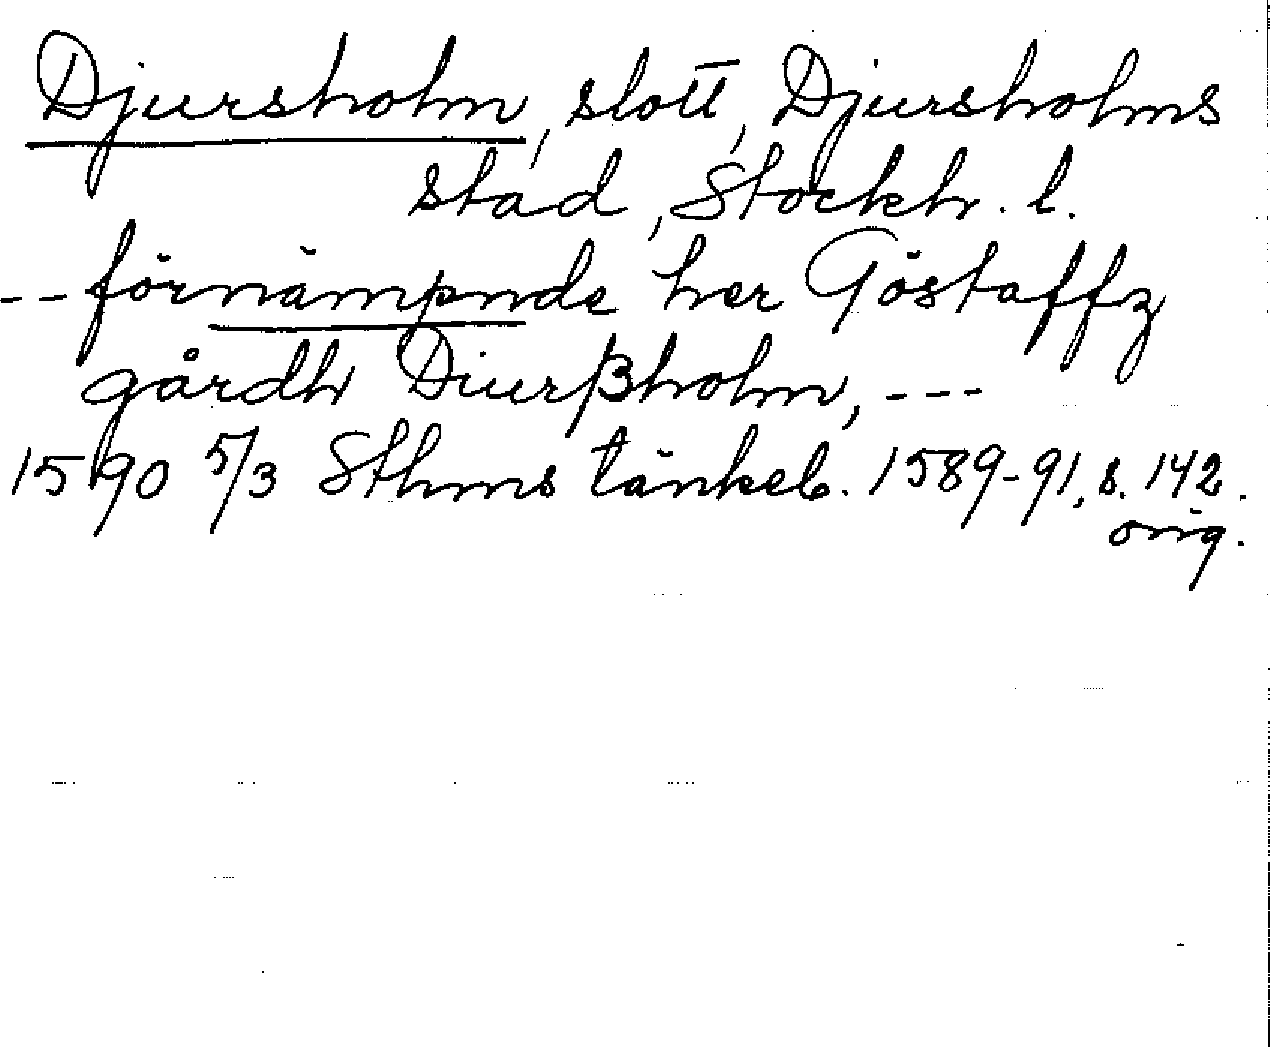 Djursholm, slott, Djursholms
stad, Stockh. l.
-- förnämpnde her Göstaffz
gårdh Diurßholm, ---
1590 5/3 Sthms tänkeb. 1589-91, s. 142.
orig.